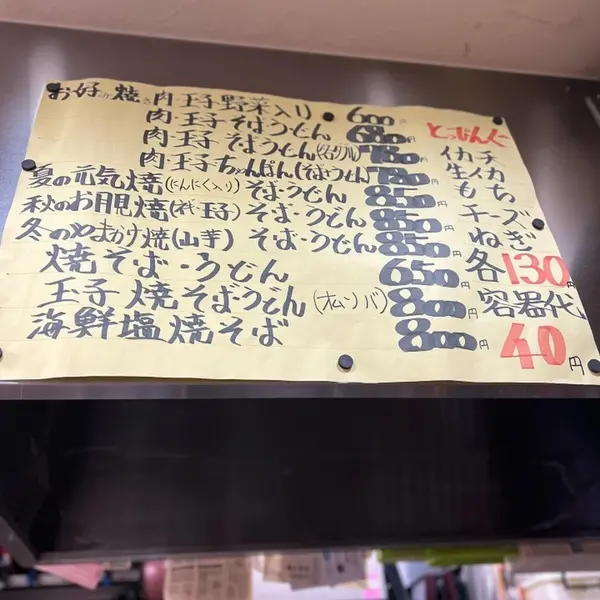 お好み焼き 肉玉子野菜入り 600円
肉玉子そばうどん 680円
肉玉子そばうどん(ダブル) 780円
肉玉子ちゃんぽん(そばうどん) 780円
夏の元気焼(にんにく入り)そば・うどん 850円
秋のお月見焼(そば玉子)そば・うどん 850円
冬のやまかけ焼(山芋)そば・うどん 850円
焼そば・うどん 650円
玉子焼そばうどん(オムソバ) 800円
海鮮塩焼そば 800円
とっぴんぐ
イカ天
生イカ
もち
チーズ
ねぎ
各130円
容器代
40円